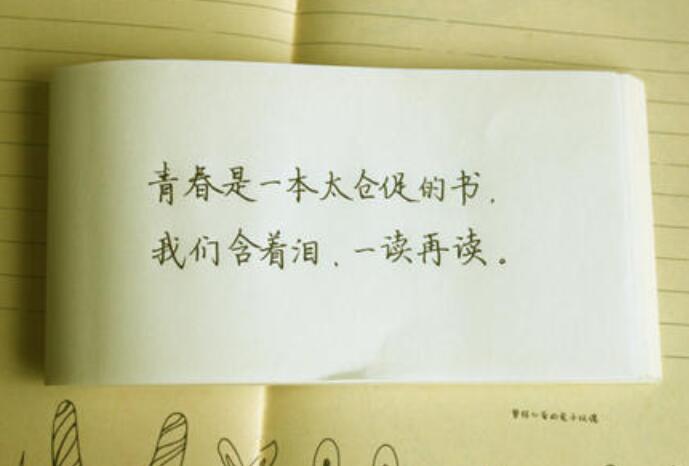 青春是一本太仓促的书，
我们含着泪，一读再读。